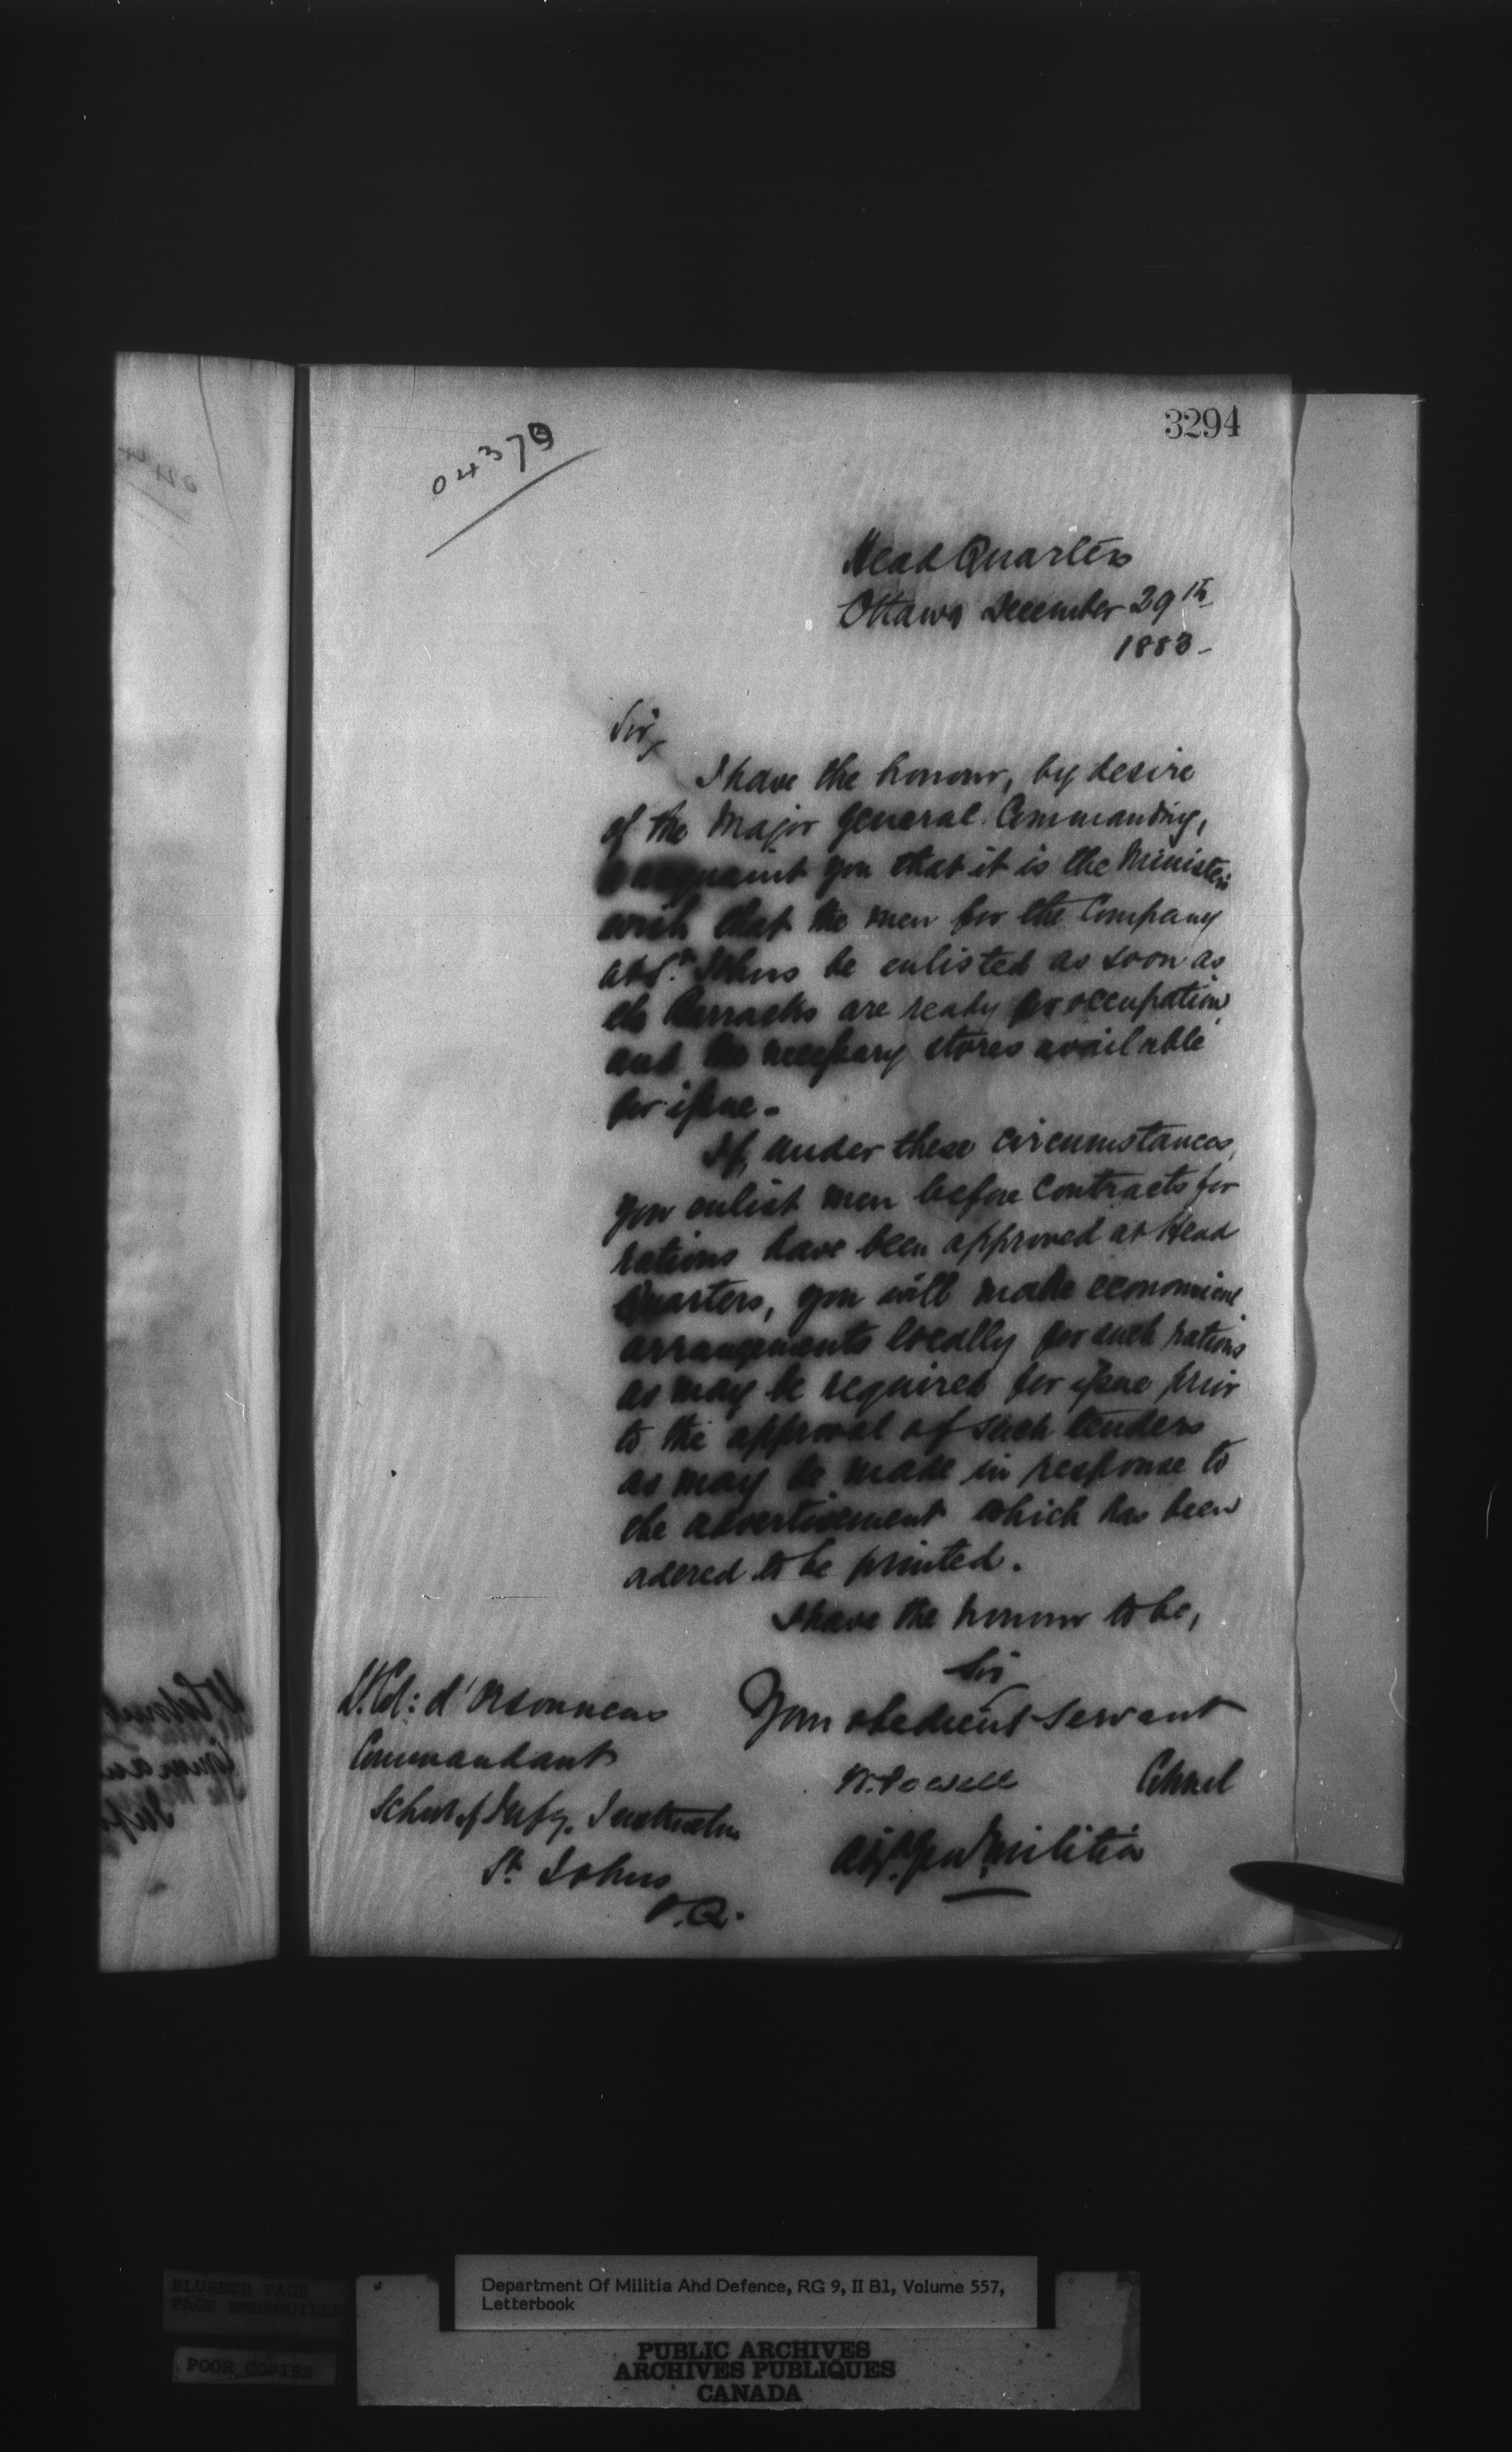 3294
04379
Head Quarters
Ottawa December 29th
1883-
Sir,
I have the honour, by desire
of the Major General Commanding,
to acquaint you that it is the Minister's
wish that the men for the Company
at St. Johns be enlisted as soon as
the Barracks are ready for occupation,
and the necessary stores available
for issue-
If, under these circumstances,
you enlist men before contracts for
rations have been approved at Head
Quarters, you will make economical
arrangements locally for such rations
as may be required for issue prior
to the approval of such tenders
as may be made in response to
the advertisement which has been
ordered to be printed.
I have the honour to be,
Sir
Your obedient servant
W. Powell Colonel
Adjt. Genl Militia
Lt. Col: d'Orsonnens
Commandant
School of Infy. Instruction
St. Johns
P.Q.
BLURRED PAGE
PAGE EMBROUILLEE
POOR COPIES
Department Of Militia And Defence, RG 9, II B1, Volume 557,
Letterbook
PUBLIC ARCHIVES
ARCHIVES PUBLIQUES
CANADA